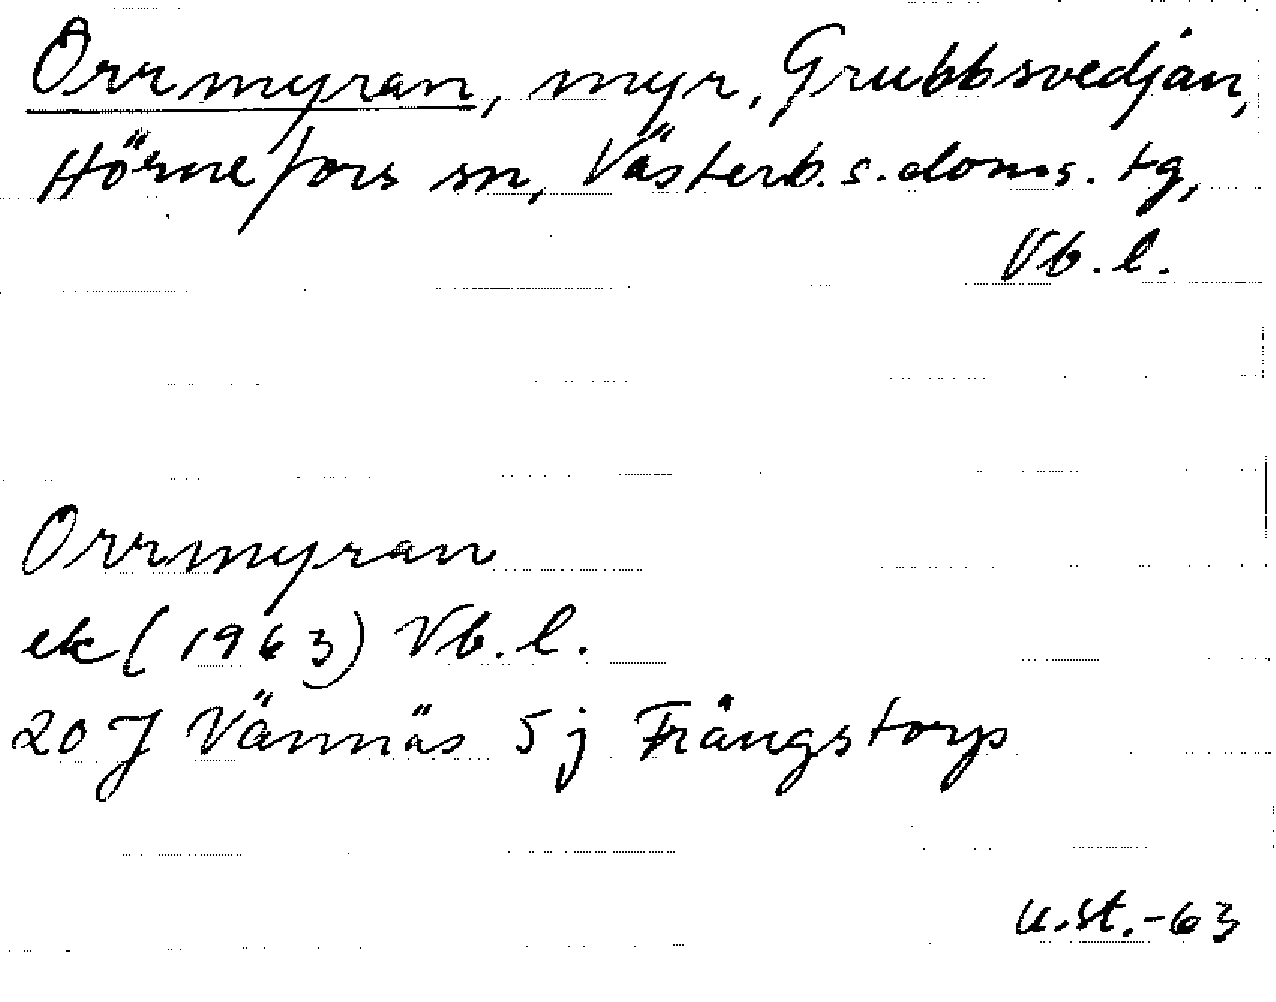 Orrmyran, myr, Grubbsvedjan,
Hörnefors sn, Västerb. s. doms. tg,
Vb. l.
Orrmyran
ek (1963) Vb. l.
20 J Vännäs 5 j Frängstorp
u.st.-63